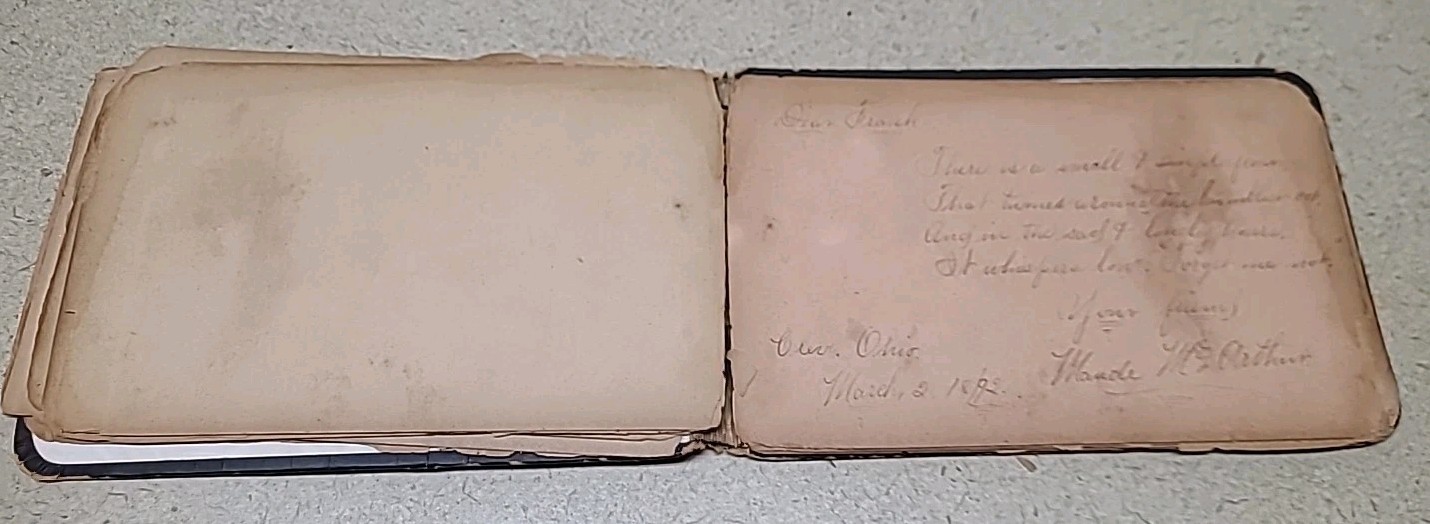 Dear Frank
There is a small & simple
That twines around the
And in the sad & lonely
It whispers low. Forget me not.
Your friend
Maude McArthur
Ohio.
March, 2. 1892.